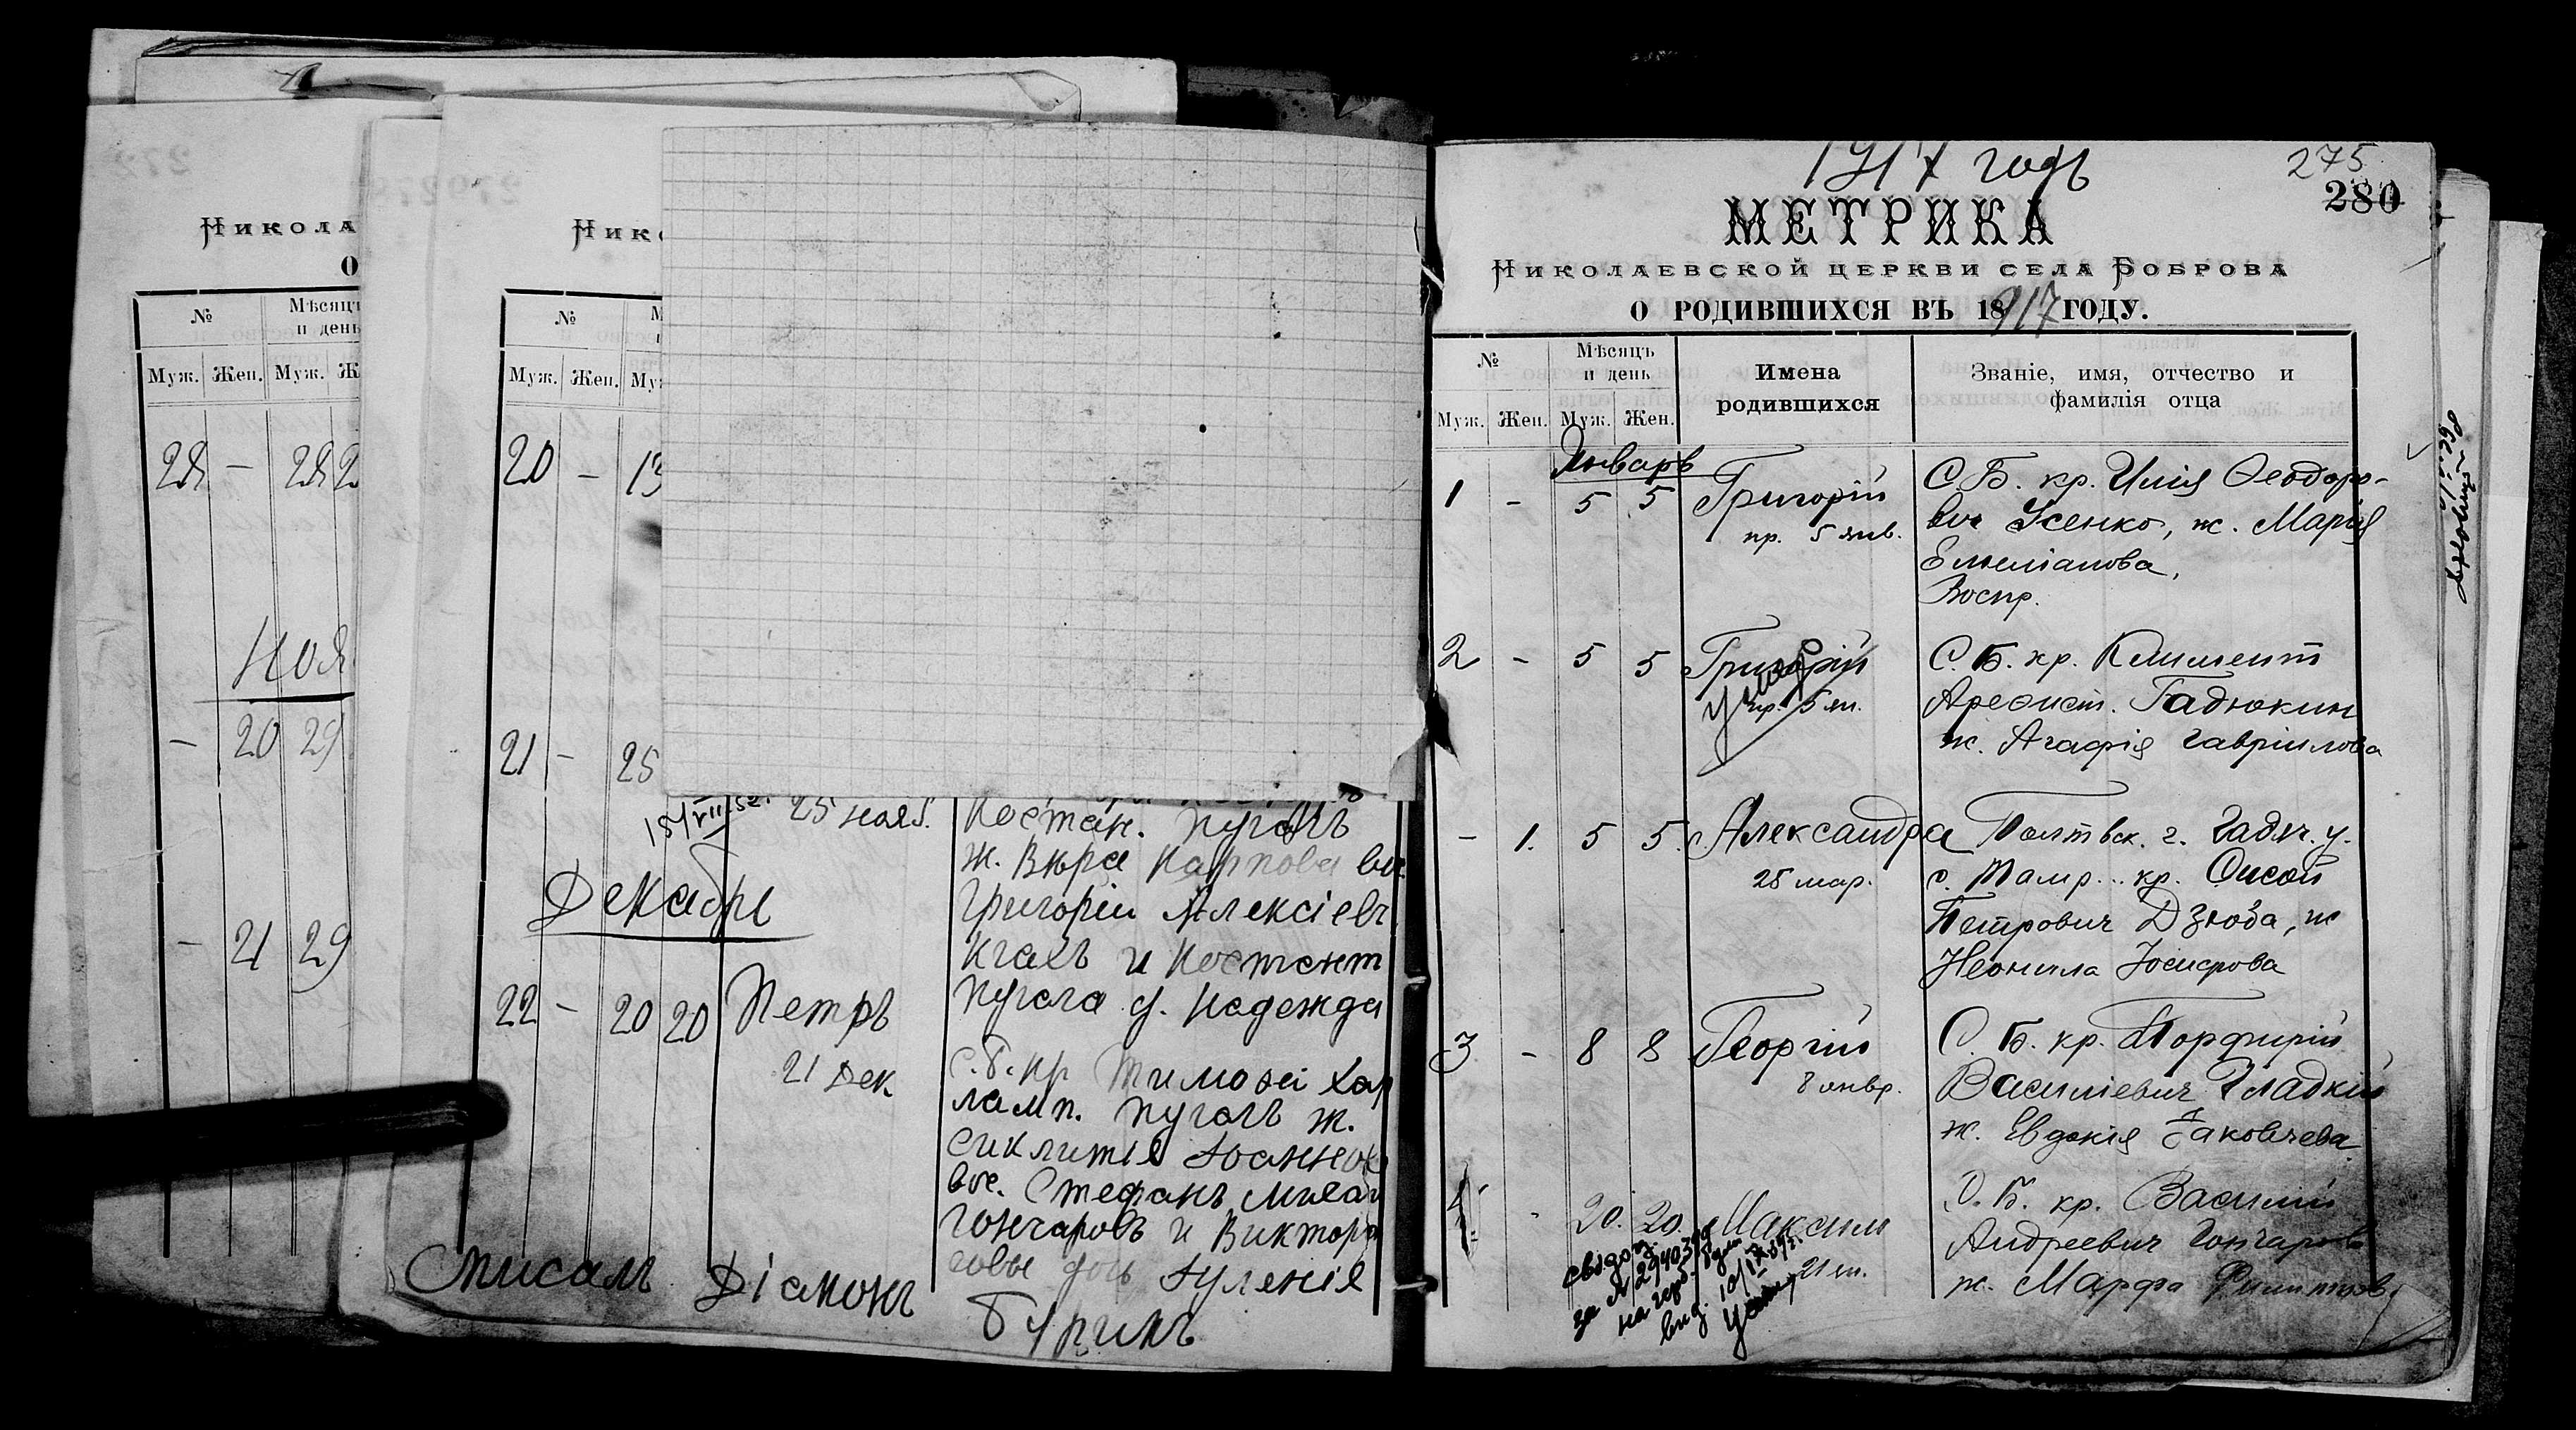 Никола
О
№
Мѣсяцъ
и день
Муж. Жен. Муж.
28 - 28 2
Ноя
- 20 29
- 21 29
Нико
№
Муж. Жен.
20 - 13
21 - 25
25 нояб.
Констан. Пугачъ
ж. Вѣра Карпова
Григорій Алексіевъ
и Констант
Пугача д. Надежда
Декабрь
22 - 20 20 Петръ
21 Дек
С. Б. кр Тимоѳеі Хар
ламп. Пугачъ ж.
Сиклитія Іоаннов
вос. Стефанъ Михаи
Гончаровъ и Виктора
дочь Іуленія
Списалъ Діаконъ
1917 годъ
275
280
МЕТРИКА
Николаевской церкви села Боброва
О РОДИВШИХСЯ ВЪ 1917 ГОДУ.
№
Мѣсяцъ
и день
Имена
родившихся
Званіе, имя, отчество и
фамилія отца
Муж. Жен. Муж. Жен.
Январь
1 - 5 5 Григорій
пр. 5 янв.
С. Б. кр. Илія Ѳеодоро-
вич Усенко, ж. Марія
Емеліанова,
Воспр.
2 - 5 5 Григорій
умер
пр. 5 ян.
С. Б. кр. Климент
Гадюкин
ж. Агафія Гавріилова
- 1. 5 5. Александра
25 мар.
Полтвск. г. Гадяч. у.
с. кр.
Петрович Дзюба, ж
Неонила Іосифова
3 - 8 8 Георгій
8 янвр.
С. Б. кр. Порфирій
Василіевич Гладкій
ж. Евдокія Яковлева
4 - 20. 20. Максим
21 ян.
С. Б. кр. Василій
Андреевич Гончаров
ж. Марфа Филиппов.